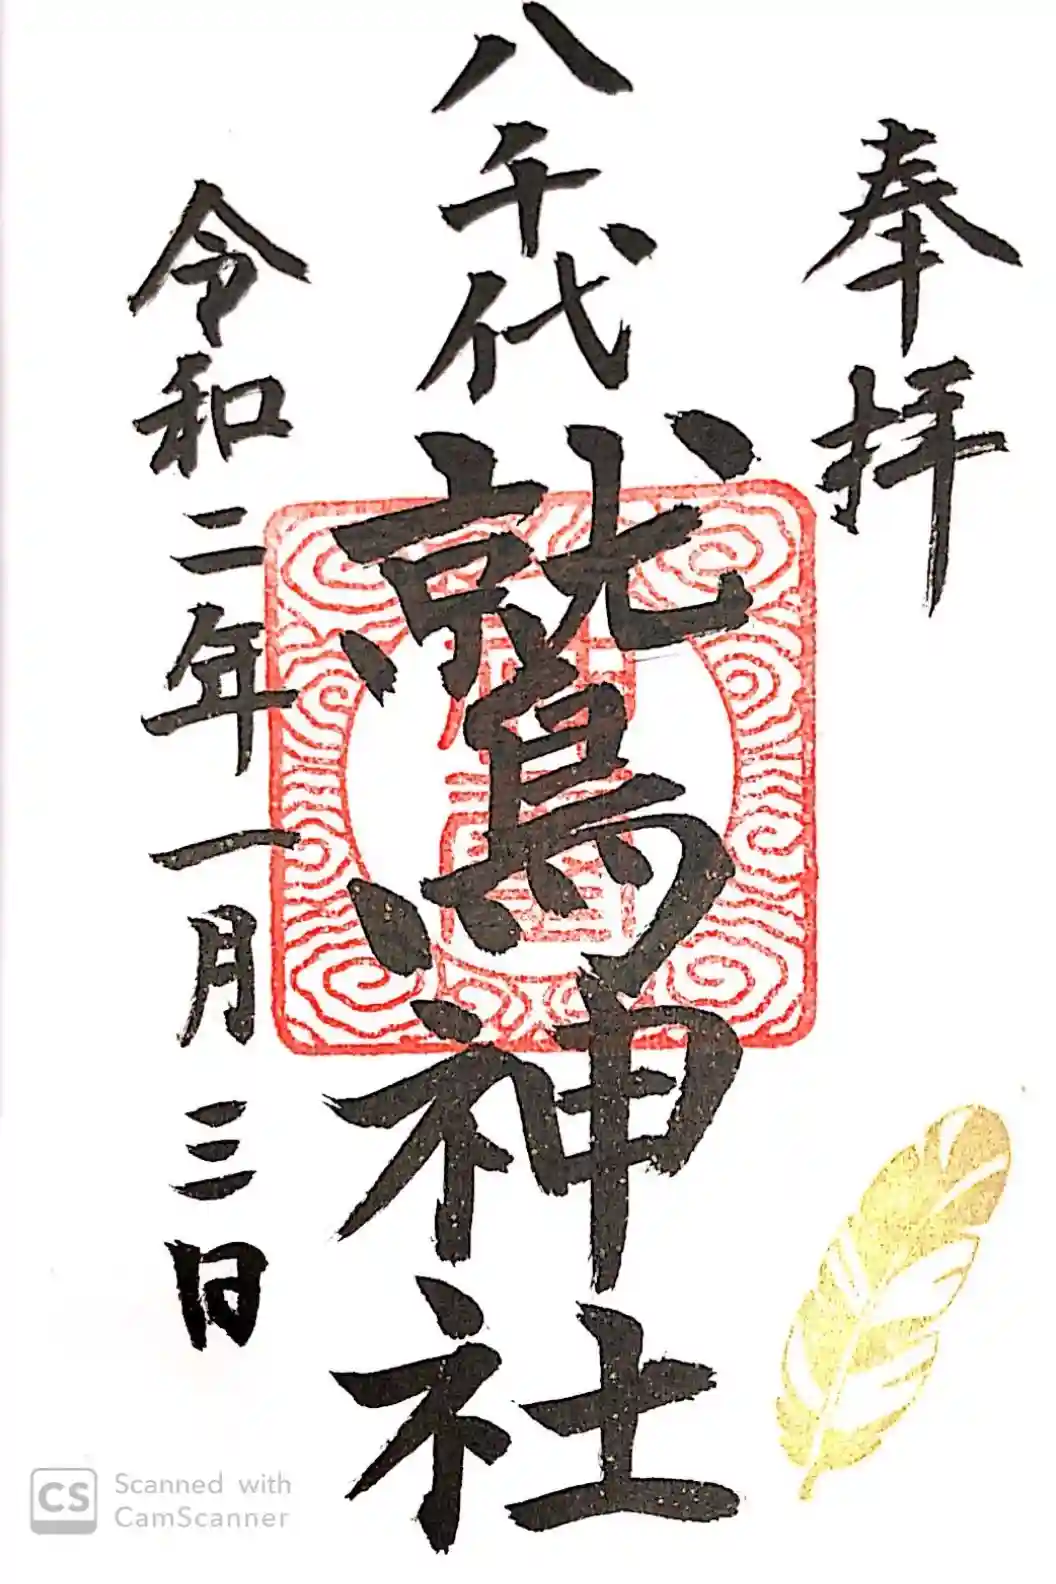 奉拝
八千代
鷲神社
令和二年一月三日
CS Scanned with
CamScanner